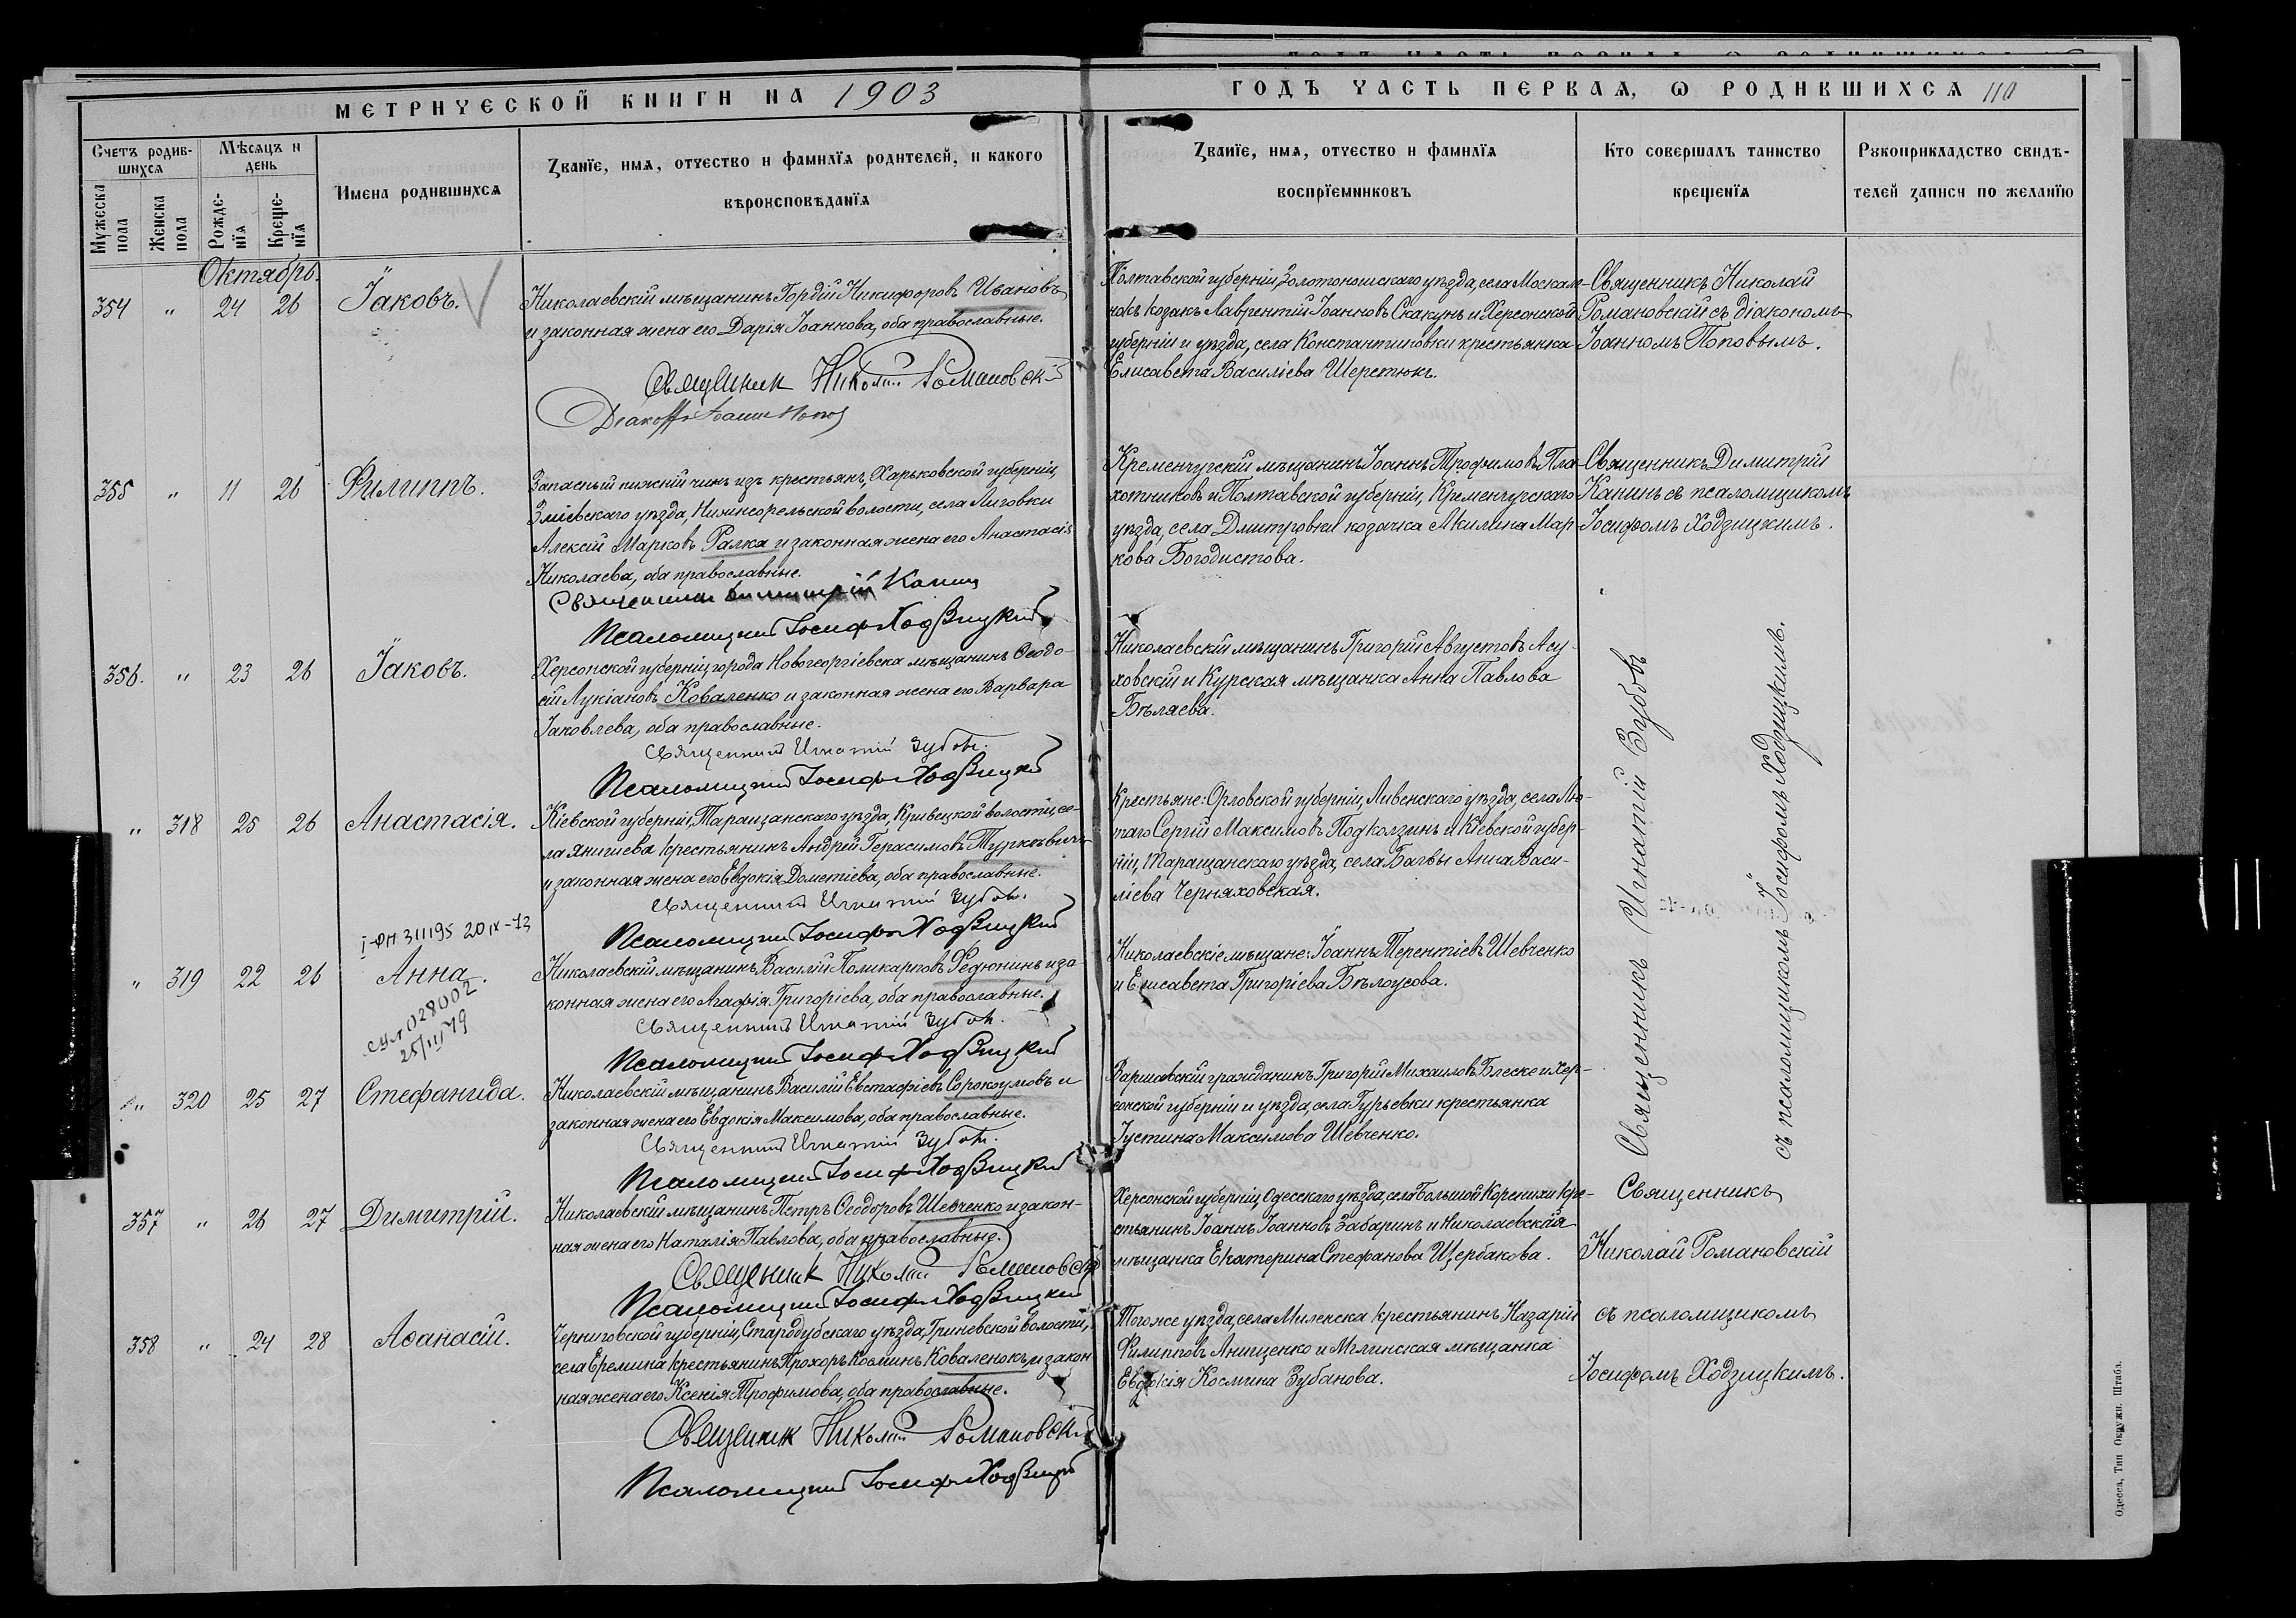 МЕТРИЧЕСКОЙ КНИГИ НА 1903
ГОДЪ ЧАСТЬ ПЕРВАЯ, Ѡ РОДИВШИХСЯ 110
Счетъ родив-
шихся
Мужеска
пола
Женска
пола
Мѣсяцъ и
день
Рожде-
нїя
Креще-
нїя
Имена родившихся
Званїе, имя, отчество и фамилїя родителей, и какого
вѣроисповѣданїя
Званїе, имя, отчество и фамилїя
воспрїемниковъ
Кто совершалъ таинство
крещенїя
Рукоприкладство свидѣ-
телей записи по желанїю
Октябрь.
354 " 24 26 Іаковъ.
Николаевскій мѣщанинъ Гордій Никифоровъ Ивановъ
и законная жена его Дарія Іоаннова, оба православные.
Священник Николай Романовский
Діаконъ Іоаннъ Попов
Полтавской губерніи Золотоношскаго уѣзда, села Москале-
нокъ козакъ Лаврентій Іоанновъ Скакунъ и Херсонской
губерніи и уѣзда, села Константиновки крестьянка
Елисавета Василіева Шерстюкъ.
Священникъ Николай
Романовскій съ діакономъ
Іоанномъ Поповымъ.
355 " 11 26 Филиппъ.
Запасный нижній чинъ изъ крестьянъ, Харьковской губерніи,
Зміевскаго уѣзда, Нижнеорельской волости, села Лиговки
Алексій Марковъ Ралка и законная жена его Анастасія
Николаева, оба православные.
Священникъ Димитрій Канинъ
Псаломщикъ Іосифъ Ходзицкий
Кременчугскій мѣщанинъ Іоаннъ Трофимовъ Пла-
хотниковъ и Полтавской губерніи, Кременчугскаго
уѣзда, села Дмитровки козачка Акилина Мар-
кова Богодистова.
Священникъ Димитрій
Канинъ съ псаломщикомъ
Іосифомъ Ходзицкимъ.
356. " 23 26 Іаковъ.
Херсонской губерніи, города Новогеоргіевска мѣщанинъ Ѳеодо-
сій Лукіановъ Коваленко и законная жена его Варвара
Іаковлева, оба православные.
Священникъ Игнатій Зубовъ.
Псаломщикъ Іосифъ Ходзицкий
Николаевскій мѣщанинъ Григорій Августовъ Асу-
ховскій и Курская мѣщанка Анна Павлова
Бѣляева.
Священникъ Игнатій Зубовъ
съ псаломщикомъ Іосифомъ Ходзицкимъ.
" 318 25 26 Анастасія.
Кіевской губерніи, Таращанскаго уѣзда, Кривецкой волости, се-
ла Янишева крестьянинъ Андрей Герасимовъ Туркевичъ
и законная жена его Евдокія Дометіева, оба православные.
Священникъ Игнатій Зубовъ.
Псаломщикъ Іосифъ Ходзицкий
Крестьяне: Орловской губерніи, Ливенскаго уѣзда, села Лю-
таго Сергій Максимовъ Подколзинъ и Кіевской губер-
ніи, Таращанскаго уѣзда, села Багвы Анна Васи-
ліева Черняховская.
I-ФП 311195 20 IX-73
" 319 22 26 Анна.
028002
25/III 79
Николаевскій мѣщанинъ Василій Поликарповъ Федюнинъ и за-
конная жена его Агафія Григоріева, оба православные.
Священникъ Игнатій Зубовъ.
Псаломщикъ Іосифъ Ходзицкий
Николаевскіе мѣщане: Іоаннъ Терентіевъ Шевченко
и Елисавета Григоріева Бѣлоусова.
" 320 25 27 Стефанида.
Николаевскій мѣщанинъ Василій Евстафіевъ Сорокоумовъ и
законная жена его Евдокія Максимова, оба православные.
Священникъ Игнатій Зубовъ.
Псаломщикъ Іосифъ Ходзицкий
Варшавскій гражданинъ Григорій Михаиловъ Блеске и Хер-
сонской губерніи и уѣзда, села Гурьевки крестьянка
Іустина Максимова Шевченко.
357 " 26 27 Димитрій.
Николаевскій мѣщанинъ Петръ Ѳеодоровъ Шевченко и закон-
ная жена его Наталія Павлова, оба православные.
Священник Николай Романовский
Псаломщикъ Іосифъ Ходзицкий
Херсонской губерніи, Одесскаго уѣзда, села Большой Коренихи кре-
стьянинъ Іоаннъ Іоанновъ Забаринъ и Николаевская
мѣщанка Екатерина Стефанова Щербакова.
Священникъ
Николай Романовскій
съ псаломщикомъ
Іосифомъ Ходзицкимъ.
358 " 24 28 Аѳанасій.
Черниговской губерніи, Стародубскаго уѣзда, Гриневской волости,
села Еремина крестьянинъ Прохоръ Козминъ Коваленокъ, и закон
ная жена его Ксенія Трофимова, оба православные.
Священник Николай Романовский
Псаломщикъ Іосифъ Ходзицкий
Того же уѣзда, села Миленска крестьянинъ Назарій
Филипповъ Анищенко и Мглинская мѣщанка
Евдокія Космина Зубанова.
Одесса, Тип Окружн. Штаба.